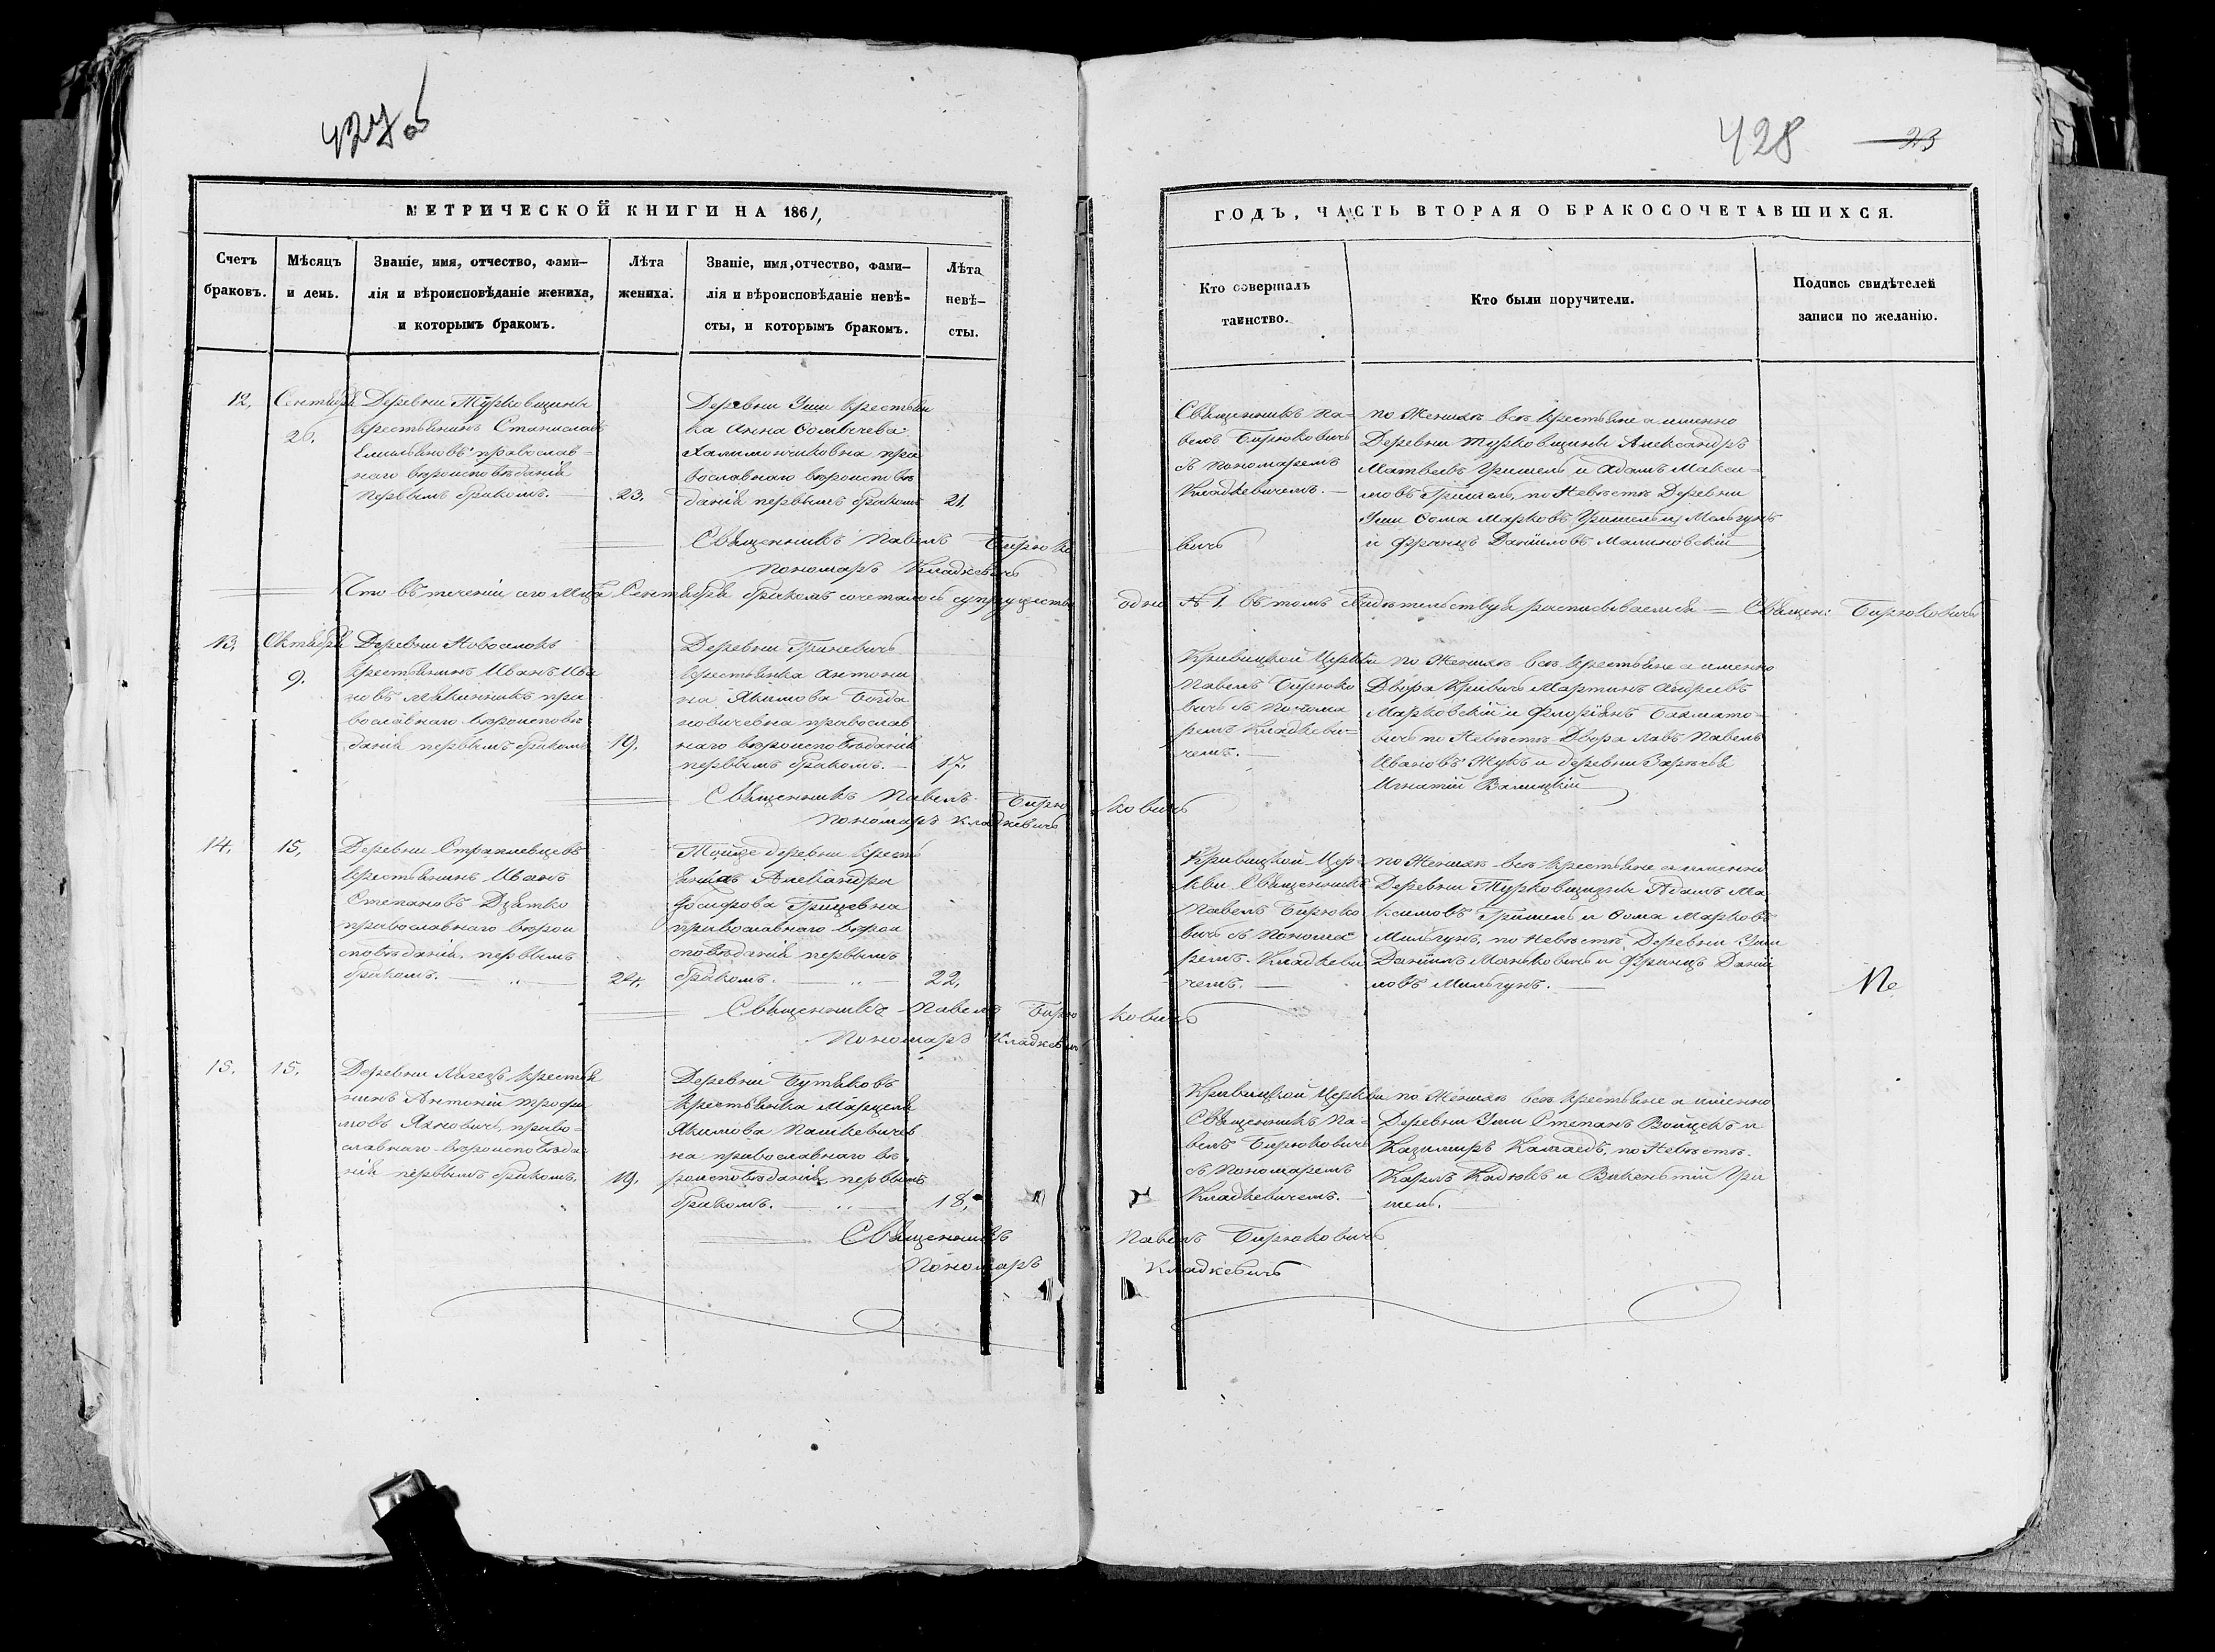 427об
428
23
МЕТРИЧЕСКОЙ КНИГИ НА 1861,
Счетъ браковъ.
Мѣсяцъ и день.
Званіе, имя, отчество, фами-
лія и вѣроисповѣданіе жениха,
и которымъ бракомъ.
Лѣта
жениха.
Званіе, имя, отчество, фами-
лія и вѣроисповѣданіе невѣ-
сты, и которымъ бракомъ.
Лѣта
невѣ-
сты.
ГОДЪ, ЧАСТЬ ВТОРАЯ О БРАКОСОЧЕТАВШИХСЯ.
Кто совершалъ
таинство.
Кто были поручители.
Подпись свидѣтелей
записи по желанію.
12.
Сентября
26.
Деревни Турковщины
крестьянинъ Станиславъ
Емильяновъ православ-
наго вѣроисповѣданія
первымъ бракомъ.
23.
Деревни Уши крестьян
ка Анна Ѳомичева
Халимончиковна пра
вославнаго вѣроисповѣ
данія первымъ бракомъ
21.
Священникъ Па-
велъ Бирюковичъ
съ Пономаремъ
Кладкевичемъ.
по Женихѣ всѣ крестьяне а именно
Деревни Турковщины Александръ
Матвѣевъ Гришель и Адамъ Макси-
мовъ Гришель, по Невѣстѣ Деревни
Уши Ѳома Марковъ Мильгунъ
и Францъ Даніиловъ Малиновскій
Священникъ Павелъ Бирюковичъ
Пономарь Кладкевичъ
Что въ теченіи сего Мца Сентября бракомъ сочеталось супружество одно № 1. въ томъ свидѣтельствуя расписываемся = Священ: Бирюковичъ
13.
Октября
9.
Деревни Новоселокъ
крестьянинъ Иванъ Ива
новъ пра
вославнаго вѣроисповѣ
данія первымъ бракомъ
19.
Деревни Гриневичъ
крестьянка Антони
на Якимова Богда
новичевна православ
наго вѣроисповѣданія
первымъ бракомъ.
17.
Кривицкой Церкви
Павелъ Бирюко
вичъ съ Понома
ремъ Кладкеви-
чемъ.
по Женихѣ всѣ крестьяне а именно
Двора Кривичъ Мартинъ Андреевъ
Марковскій и Флоріянъ Бахмато-
вичъ по Невѣстѣ Двора Лавъ Павелъ
Ивановъ Жукъ и деревни Зарѣчья
Игнатій Валицкій
Священникъ Павелъ Бирюковичъ
Пономарь Кладкевичъ
14.
15.
Деревни
крестьянинъ Иванъ
Степановъ Дзятко
православнаго вѣрои
сповѣданія, первымъ
бракомъ.
24.
Тойже деревни кресть
янка Александра
Іосифова Грицевна
православнаго вѣрои
сповѣданія первымъ
бракомъ.
22.
Кривицкой Цер-
кви Священникъ
Павелъ Бирюко
вичъ съ Понома
ремъ Кладкеви
чемъ.
по Женихѣ всѣ крестьяне а именно
Деревни Турковщизны Адамъ Ма
ксимовъ Гришель и Ѳома Марковъ
Мильгунъ, по Невѣстѣ Деревни Уши
Даніилъ Маньковичъ и Францъ Даніи
ловъ Мильгунъ.
Священникъ Павелъ Бирюковичъ
Пономарь Кладкевичъ
15.
15.
Деревни крестья
нинъ Антоній Трофи
мовъ Яхновичъ, право-
славнаго вѣроисповѣда
нія первымъ бракомъ.
19.
Деревни Бутьковъ
крестьянка Марцеля
Якимова Пашкевичев
на православнаго вѣ
роисповѣданія, первымъ
бракомъ.
18.
Кривицкой Церкви
Священникъ Па-
велъ Бирюковичъ
съ Пономаремъ
Кладкевичемъ.
по Женихѣ всѣ крестьяне а именно
Деревни Уши Степанъ Войцехъ и
Казимиръ по Невѣстѣ
Карлъ и Викентій Гри
шель.
Священникъ Павелъ Бирюковичъ
Пономарь Кладкевичъ